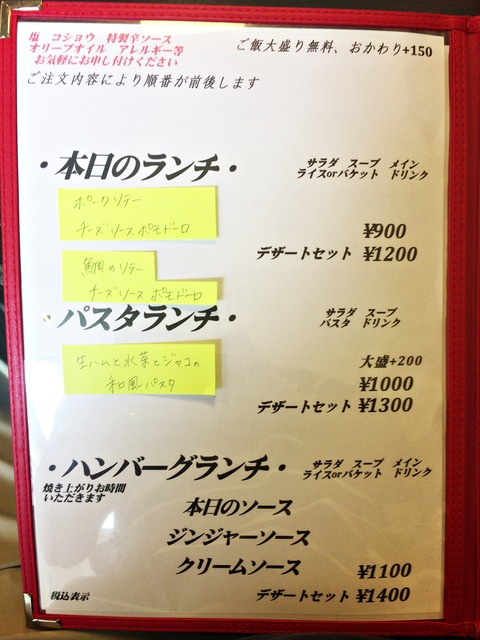 塩　コショウ　特製辛ソース
オリーブオイル　アレルギー等
お気軽にお申し付けください
ご飯大盛り無料、おかわり+150
ご注文内容により順番が前後します
・本日のランチ・
サラダ　スープ　メイン
ライスorバケット　ドリンク
ポークソテー
チーズソースポモドーロ
¥900
デザートセット ¥1200
鯛のソテー
チーズソース ポモドーロ
・パスタランチ・
サラダ　スープ
パスタ　ドリンク
生ハムと水菜とジャコの
和風パスタ
大盛+200
¥1000
デザートセット ¥1300
・ハンバーグランチ・
サラダ　スープ　メイン
ライスorバケット　ドリンク
焼き上がりお時間
いただきます
本日のソース
ジンジャーソース
クリームソース
¥1100
デザートセット ¥1400
税込表示